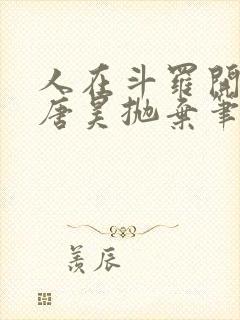 人在斗羅開
唐昊拋棄筆
羨辰